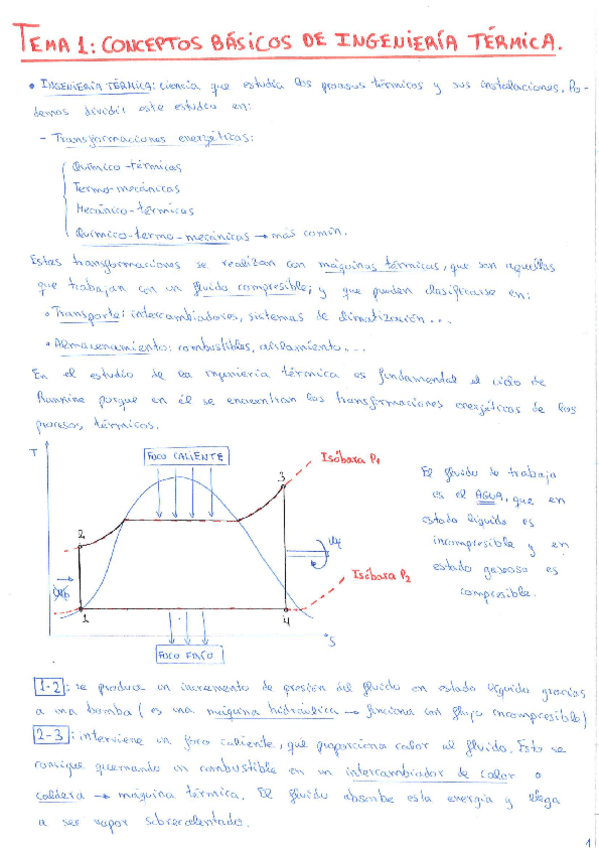 TEMA 1: CONCEPTOS BÁSICOS DE INGENIERÍA TÉRMICA.
• INGENIERÍA TÉRMICA: ciencia que estudia los procesos térmicos y sus instalaciones. Po-
demos dividir este estudio en:
- Transformaciones energéticas:
Químico-térmicas
Termo-mecánicas
Mecánico-térmicas
Químico-termo-mecánicas → más común.
Estas transformaciones se realizan con máquinas térmicas, que son aquellas
que trabajan con un fluido compresible; y que pueden clasificarse en:
• Transporte: intercambiadores, sistemas de climatización...
• Almacenamiento: combustibles, aislamiento...
En el estudio de la ingeniería térmica es fundamental el ciclo de
Rankine porque en él se encuentran las transformaciones energéticas de los
procesos térmicos.
T
FOCO CALIENTE
Isóbara P1
3
2
El fluido de trabajo
es el AGUA, que en
estado líquido es
incompresible y en
estado gaseoso es
compresible.
Isóbara P2
1
4
S
FOCO FRÍO
1-2: se produce un incremento de presión del fluido en estado líquido gracias
a una bomba (es una máquina hidráulica → funciona con flujo incompresible)
2-3: interviene un foco caliente, que proporciona calor al fluido. Esto se
consigue quemando un combustible en un intercambiador de calor o
caldera → máquina térmica. El fluido absorbe esta energía y llega
a ser vapor sobrecalentado.
1